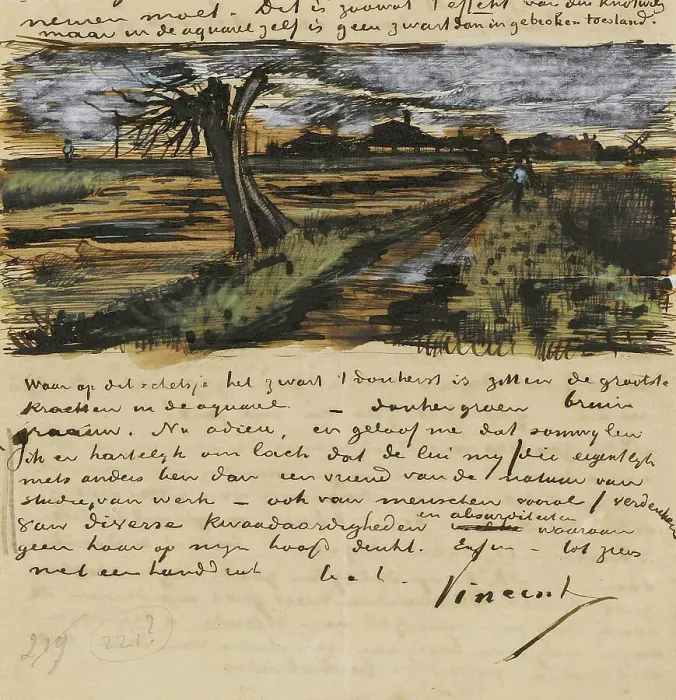 nemen moet. Dit is zoowat 't effekt van den knotwilg
maar in de aquarel zelf is geen zwart dan in gebroken toestand.
Waar op dit schetsje het zwart 't donkerst is zitten de grootste
krachten in de aquarel – donkergroen bruin
graauw. Nu adieu, en geloof me dat somwijlen
ik er hartelyk om lach dat de lui my (die eigentlyk
niets anders ben dan een vriend van de natuur van
studie, van werk – ook van menschen vooral) verdenken
van diverse kwaadaardigheden en absurditeiten waaraan
geen haar op myn hoofd denkt. Enfin – tot ziens
met een handdruk t. à t.
Vincent
219 221?